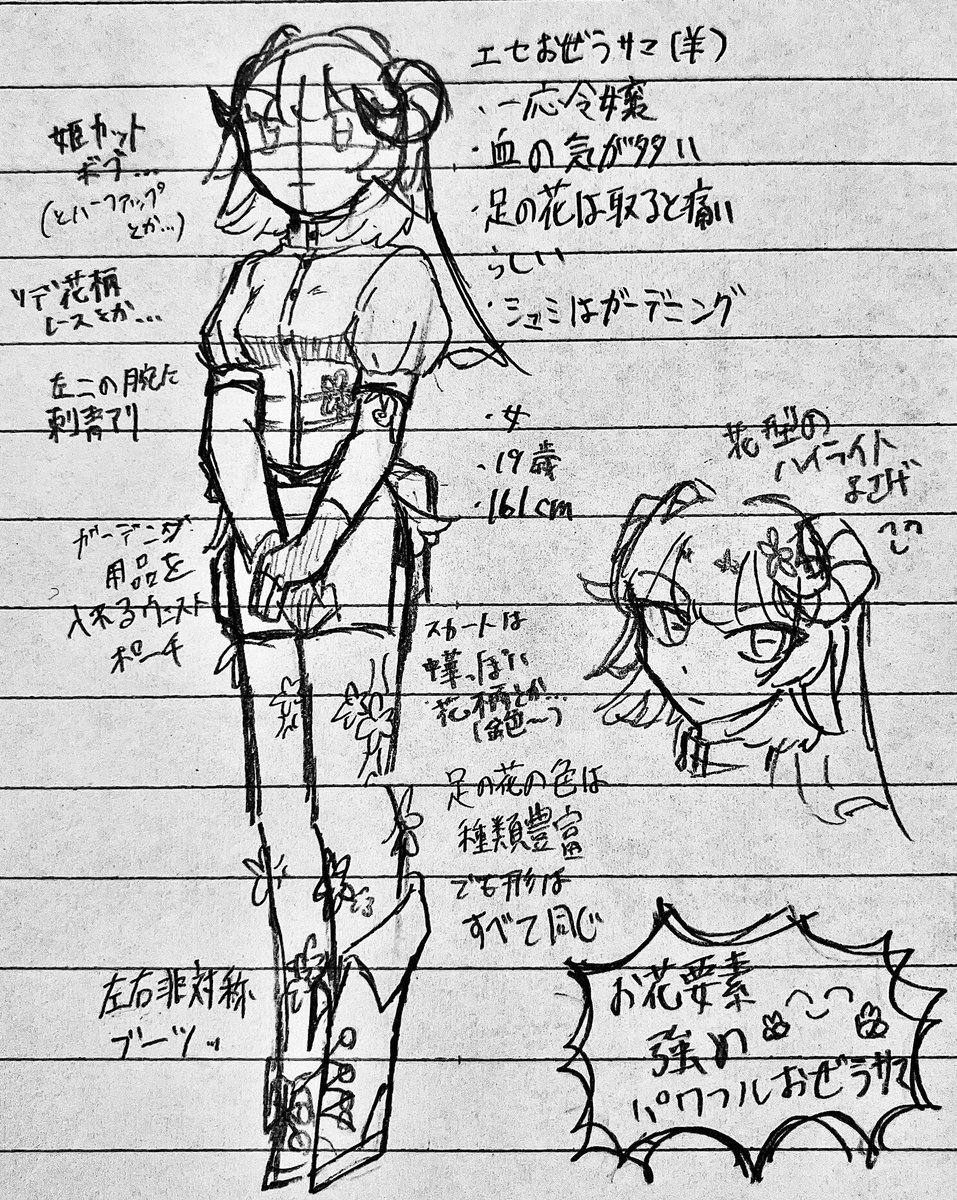 エセおぜうサマ(羊)
・一応令嬢
・血の気が多い
・足の花は取ると痛い
らしい
・シュミはガーデニング
・女
・19歳
・161cm
姫カット
ボブ…
(とハーフアップ
とか…)
ソデ花柄
レースとか…
左二の腕に
刺青アリ
ガーデニング
用品を
入れるウエスト
ポーチ
花型の
ハイライト
スカートは
葉っぽい
花柄とか…
(金色〜)
足の花の色は
種類豊富
でも形は
すべて同じ
左右非対称
ブーツッ
お花要素
強め
パワフルおぜうサマ